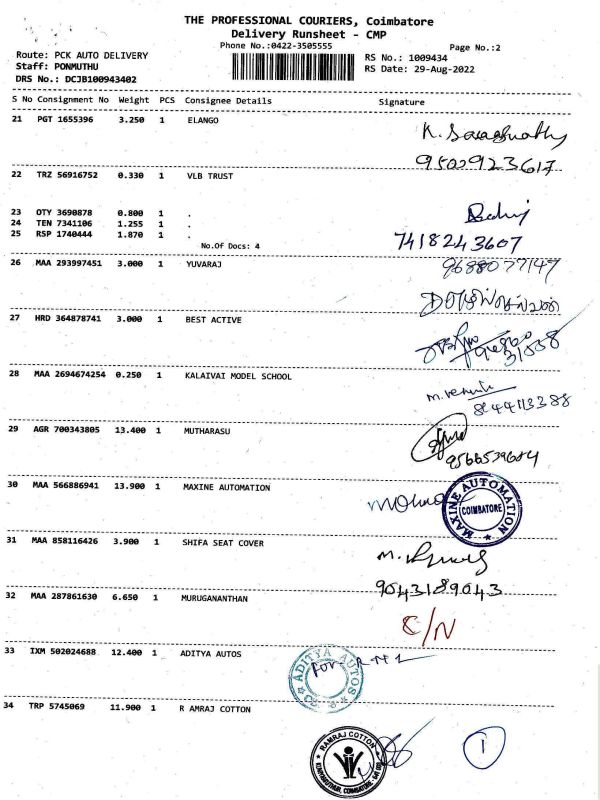 THE PROFESSIONAL COURIERS, Coimbatore
Delivery Runsheet - CMP
Phone No.:0422-3505555
Page No.:2
Route: PCK AUTO DELIVERY
Staff: PONMUTHU
DRS No.: DCJB100943402
RS No.: 1009434
RS Date: 29-Aug-2022
S No Consignment No Weight PCS Consignee Details Signature
21 PGT 1655396 3.250 1 ELANGO
9500923617
22 TRZ 56916752 0.330 1 VLB TRUST
23 OTY 3690878 0.800 1 .
24 TEN 7341106 1.255 1 .
25 RSP 1740444 1.870 1 .
No.Of Docs: 4
7418243607
26 MAA 293997451 3.000 1 YUVARAJ
9688077147
27 HRD 364878741 3.000 1 BEST ACTIVE
28 MAA 2694674254 0.250 1 KALAIVAI MODEL SCHOOL
29 AGR 700343805 13.400 1 MUTHARASU
9566539684
30 MAA 566886941 13.900 1 MAXINE AUTOMATION
MAXINE AUTOMATION
COIMBATORE
31 MAA 858116426 3.900 1 SHIFA SEAT COVER
9043189043
32 MAA 287861630 6.650 1 MURUGANANTHAN
C/N
33 IXM 502024688 12.400 1 ADITYA AUTOS
ADITYA AUTOS
34 TRP 5745069 11.900 1 R AMRAJ COTTON
RAMRAJ COTTON
1